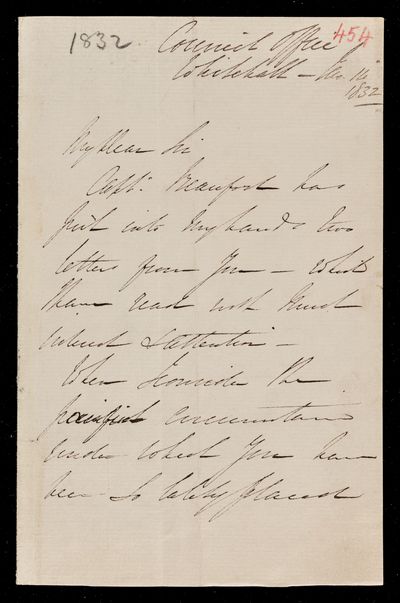 1832. 454
Council Office
Whitehall – Nov. 14
1832
My dear Sir
Capt. Beaufort has
put into my hands two
letters from you – which
I have read with much
interest & attention –
When I consider the
painful circumstances
under which you have
been so lately placed